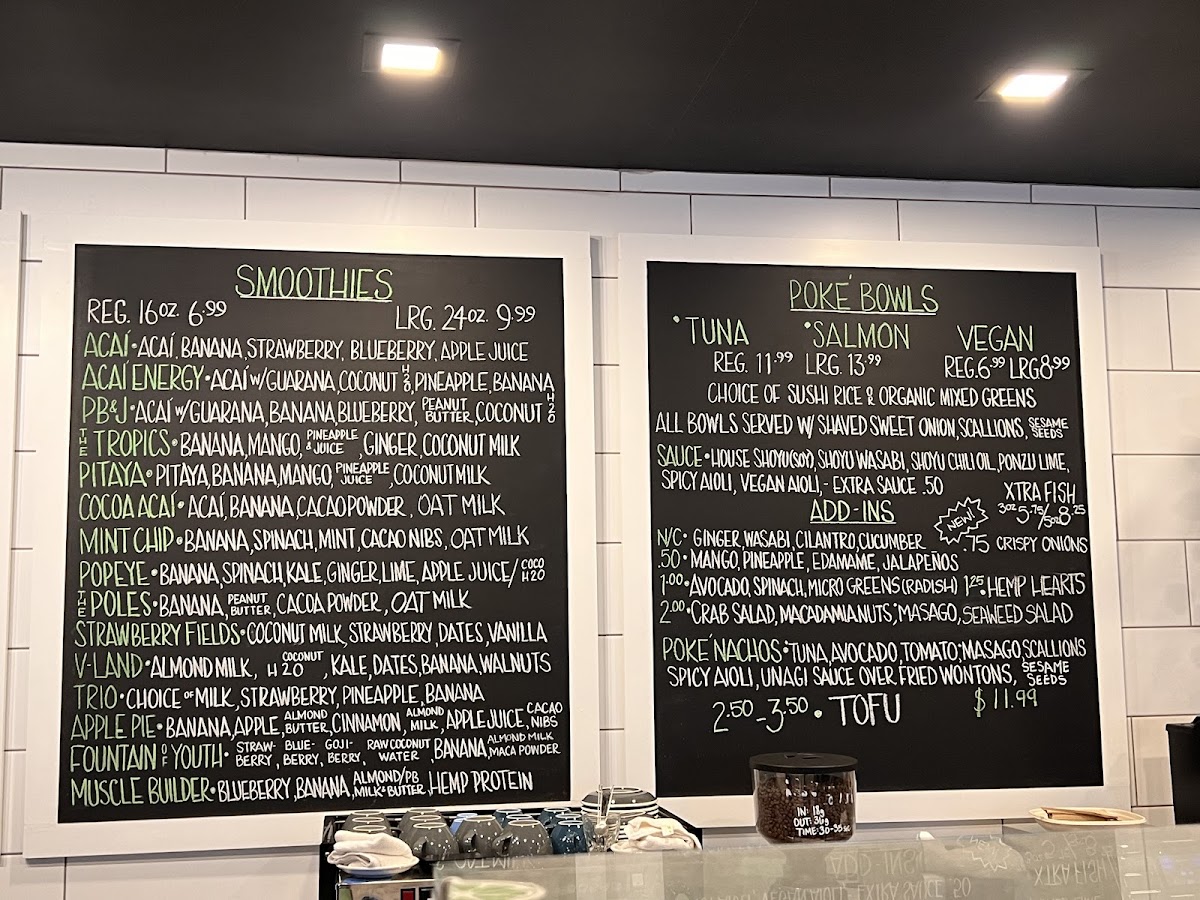 SMOOTHIES
REG. 16oz. 6.99 LRG. 24oz. 9.99
ACAÍ • ACAÍ, BANANA, STRAWBERRY, BLUEBERRY, APPLE JUICE
ACAÍ ENERGY • ACAÍ W/GUARANA, COCONUT H2O, PINEAPPLE, BANANA
PB&J • ACAÍ W/GUARANA, BANANA, BLUEBERRY, PEANUT BUTTER, COCONUT H2O
THE TROPICS • BANANA, MANGO, PINEAPPLE & JUICE, GINGER, COCONUT MILK
PITAYA • PITAYA, BANANA, MANGO, PINEAPPLE JUICE, COCONUT MILK
COCOA ACAÍ • ACAÍ, BANANA, CACAO POWDER, OAT MILK
MINT CHIP • BANANA, SPINACH, MINT, CACAO NIBS, OAT MILK
POPEYE • BANANA, SPINACH, KALE, GINGER, LIME, APPLE JUICE/COCO H2O
THE POLES • BANANA, PEANUT BUTTER, CACOA POWDER, OAT MILK
STRAWBERRY FIELDS • COCONUT MILK, STRAWBERRY, DATES, VANILLA
V-LAND • ALMOND MILK, COCONUT H2O, KALE, DATES, BANANA, WALNUTS
TRIO • CHOICE OF MILK, STRAWBERRY, PINEAPPLE, BANANA
APPLE PIE • BANANA, APPLE, ALMOND BUTTER, CINNAMON, ALMOND MILK, APPLE JUICE, CACAO NIBS
FOUNTAIN OF YOUTH • STRAW-BERRY, BLUE-BERRY, GOJI-BERRY, RAW COCONUT WATER, BANANA, ALMOND MILK MACA POWDER
MUSCLE BUILDER • BLUEBERRY, BANANA, ALMOND/PB MILK & BUTTER, HEMP PROTEIN
POKÉ BOWLS
*TUNA *SALMON VEGAN
REG. 11.99 LRG. 13.99 REG. 6.99 LRG 8.99
CHOICE OF SUSHI RICE & ORGANIC MIXED GREENS
ALL BOWLS SERVED W/ SHAVED SWEET ONION, SCALLIONS, SESAME SEEDS
SAUCE • HOUSE SHOYU (SOY), SHOYU WASABI, SHOYU CHILI OIL, PONZU LIME,
SPICY AIOLI, VEGAN AIOLI, - EXTRA SAUCE .50
XTRA FISH
3oz 5.75/5oz 8.25
ADD-INS
NEW!
N/C • GINGER, WASABI, CILANTRO, CUCUMBER .75 CRISPY ONIONS
.50 • MANGO, PINEAPPLE, EDAMAME, JALAPEÑOS
1.00 • AVOCADO, SPINACH, MICRO GREENS (RADISH) 1.25 • HEMP HEARTS
2.00 • CRAB SALAD, MACADAMIA NUTS, *MASAGO, SEAWEED SALAD
POKÉ NACHOS • *TUNA, AVOCADO, TOMATO, *MASAGO, SCALLIONS
SPICY AIOLI, UNAGI SAUCE OVER FRIED WONTONS, SESAME SEEDS
$11.99
2.50 - 3.50 • TOFU
IN: 18g
OUT: 36g
TIME: 30-35 sec